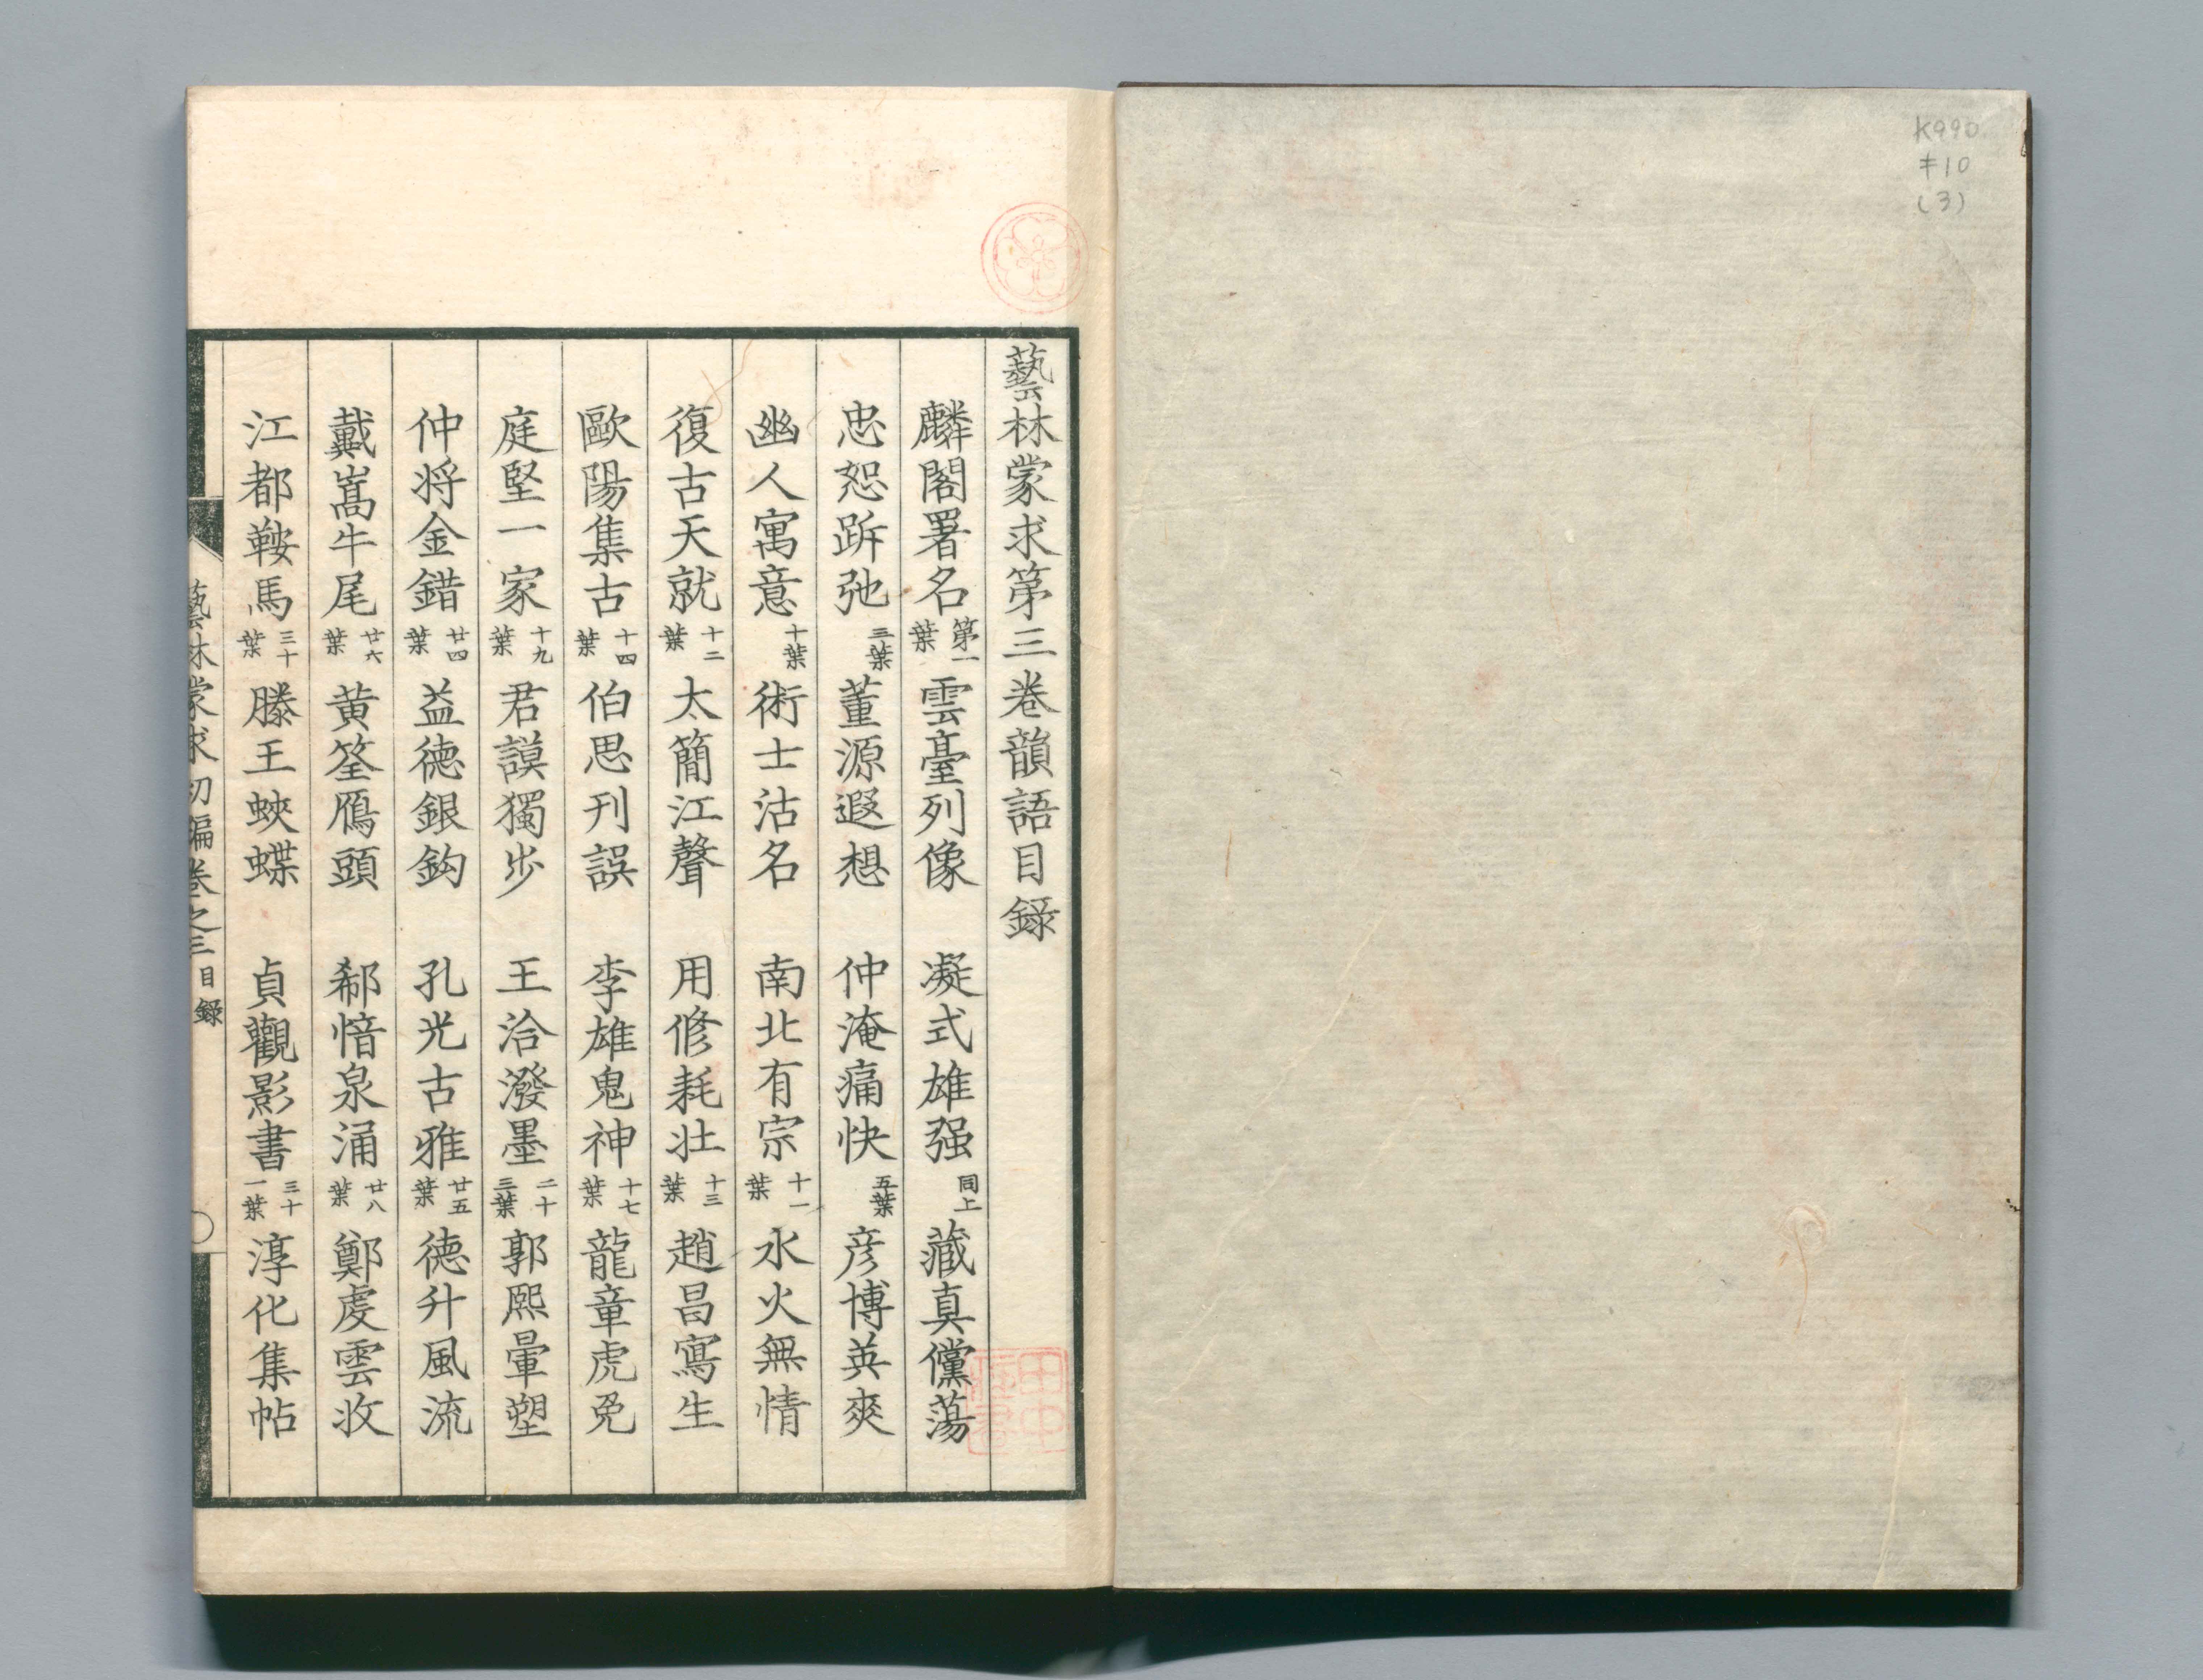 K990
キ10
(3)
藝林蒙求第三卷韻語目錄
麟閣署名 第一葉 雲臺列像 凝式雄强 同上 藏真儻蕩
忠恕跅弛 三葉 董源遐想 仲淹痛快 五葉 彦博英爽
幽人寓意 十葉 術士沽名 南北有宗 十一葉 水火無情
復古天就 十二葉 太簡江聲 用修耗壯 十三葉 趙昌寫生
歐陽集古 十四葉 伯思刊誤 李雄鬼神 十七葉 龍章虎兕
庭堅一家 十九葉 君謨獨步 王洽潑墨 二十三葉 郭熙暈塑
仲将金錯 廿四葉 益德銀鈎 孔光古雅 廿五葉 德升風流
戴嵩牛尾 廿六葉 黄筌鴈頭 郗愔泉涌 廿八葉 鄭虔雲收
江都鞍馬 三十葉 滕王蛺蝶 貞觀影書 三十一葉 淳化集帖
藝林蒙求初編卷之三 目錄
田中